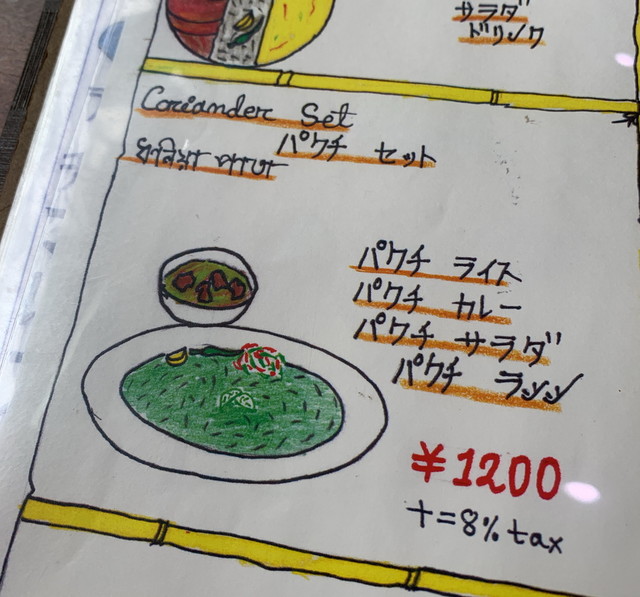 サラダ
ドリンク
Coriander Set
パクチ セット
ধনিয়া পাতা
パクチ ライス
パクチ カレー
パクチ サラダ
パクチ ラッシ
¥1200
+=8%tax